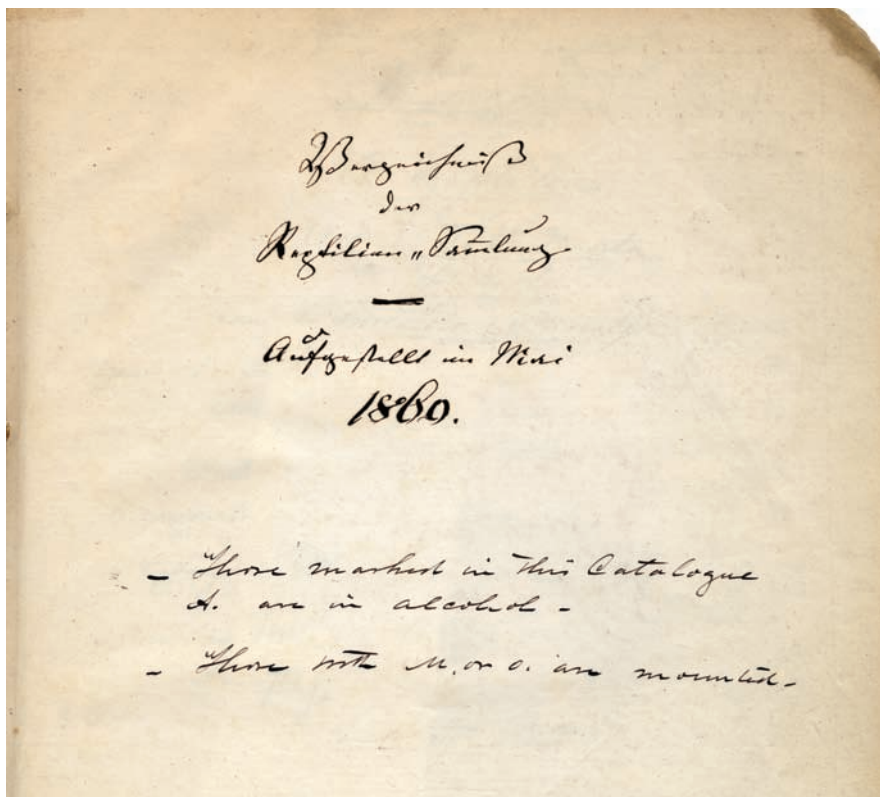 Verzeichniß
der
Reptilien „ Sam̅lung
Aufgestellt im Mai
1860.
– Those marked in this Catalogue
A. are in alcohol –
– Those with M. or O. are mounted –